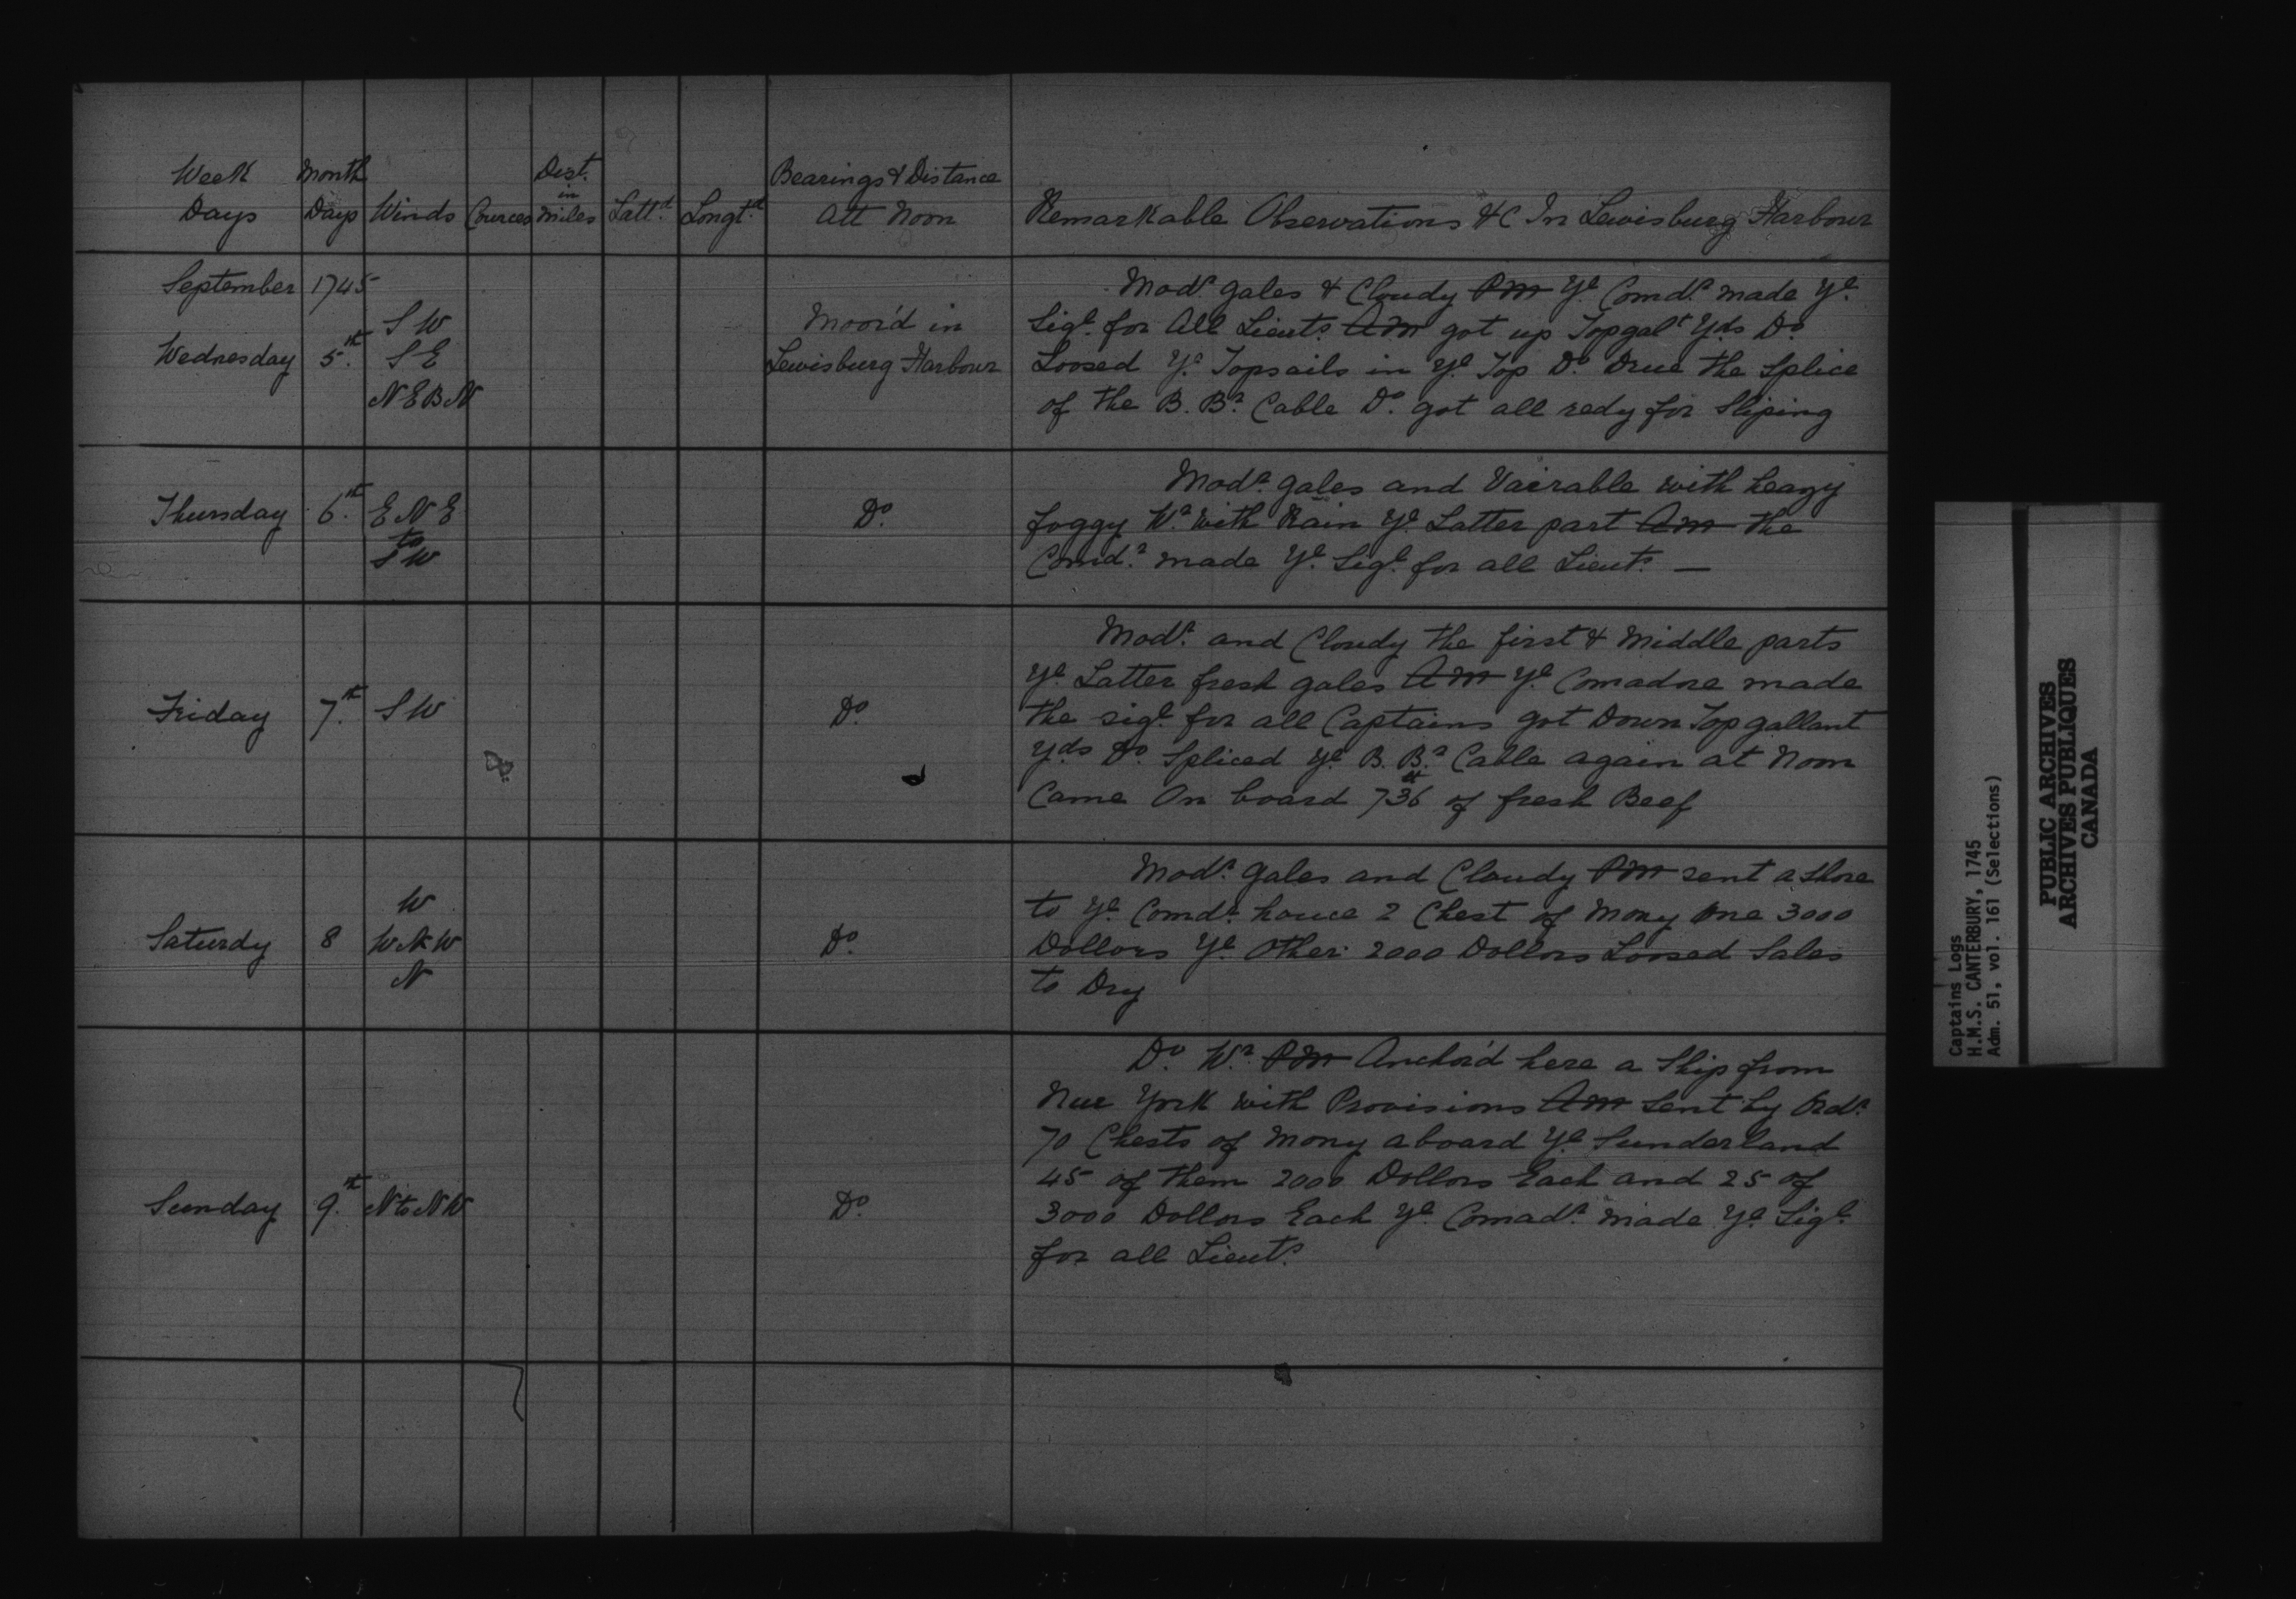 Week Days
Month Days
Winds
Cources
Dist. in Miles
Latt.d
Longt.d
Bearings & Distance
Att Noon
Remarkable Observations &C In Lewisburg Harbour
September 1745
Wednesday 5.th
S W
S E
N E B N
Moor'd in
Lewisburg Harbour
Modr. gales & Cloudy PM Ye. Comdr. made Ye.
Sigl. for All Lieuts. AM got up Topgalt Yds Do.
Loosed Ye. Topsails in Ye. Top Do. Drue the Splice
of the B. Br. Cable Do. got all redy for Sliping
Thursday 6.th
E N E
to
S W
Do.
Modr. gales and Vairable with heavy
foggy Wr. with Rain Ye. Latter part AM the
Comdr. made Ye. Sigl. for all Lieuts. —
Friday 7.th
S W
Do.
Modr. and Cloudy the first & Middle parts
Ye. Latter fresh gales AM Ye. Comadre made
the sigl. for all Captains got Down Top gallant
Yds Do. Spliced Ye. B. Br. Cable again at Noon
Came On board 736 lb of fresh Beef
Saturdy 8
W
W N W
N
Do.
Modr. Gales and Cloudy PM sent a Shore
to Ye. Comdr. house 2 Chest of Mony One 3000
Dollors Ye. Other 2000 Dollors Loosed Sales
to Dry
Sunday 9.th
N to N W
Do.
Do. Wr. PM Anchor'd here a Ship from
Nue York with Provisions AM Sent by Ordr.
70 Chests of Mony aboard Ye. Sunderland
45 of them 2000 Dollors Each and 25 of
3000 Dollors Each Ye. Comadr. Made Ye. Sigl.
for all Lieuts.
Captains Logs
H.M.S. CANTERBURY, 1745
Adm. 51, vol. 161 (Selections)
PUBLIC ARCHIVES
ARCHIVES PUBLIQUES
CANADA